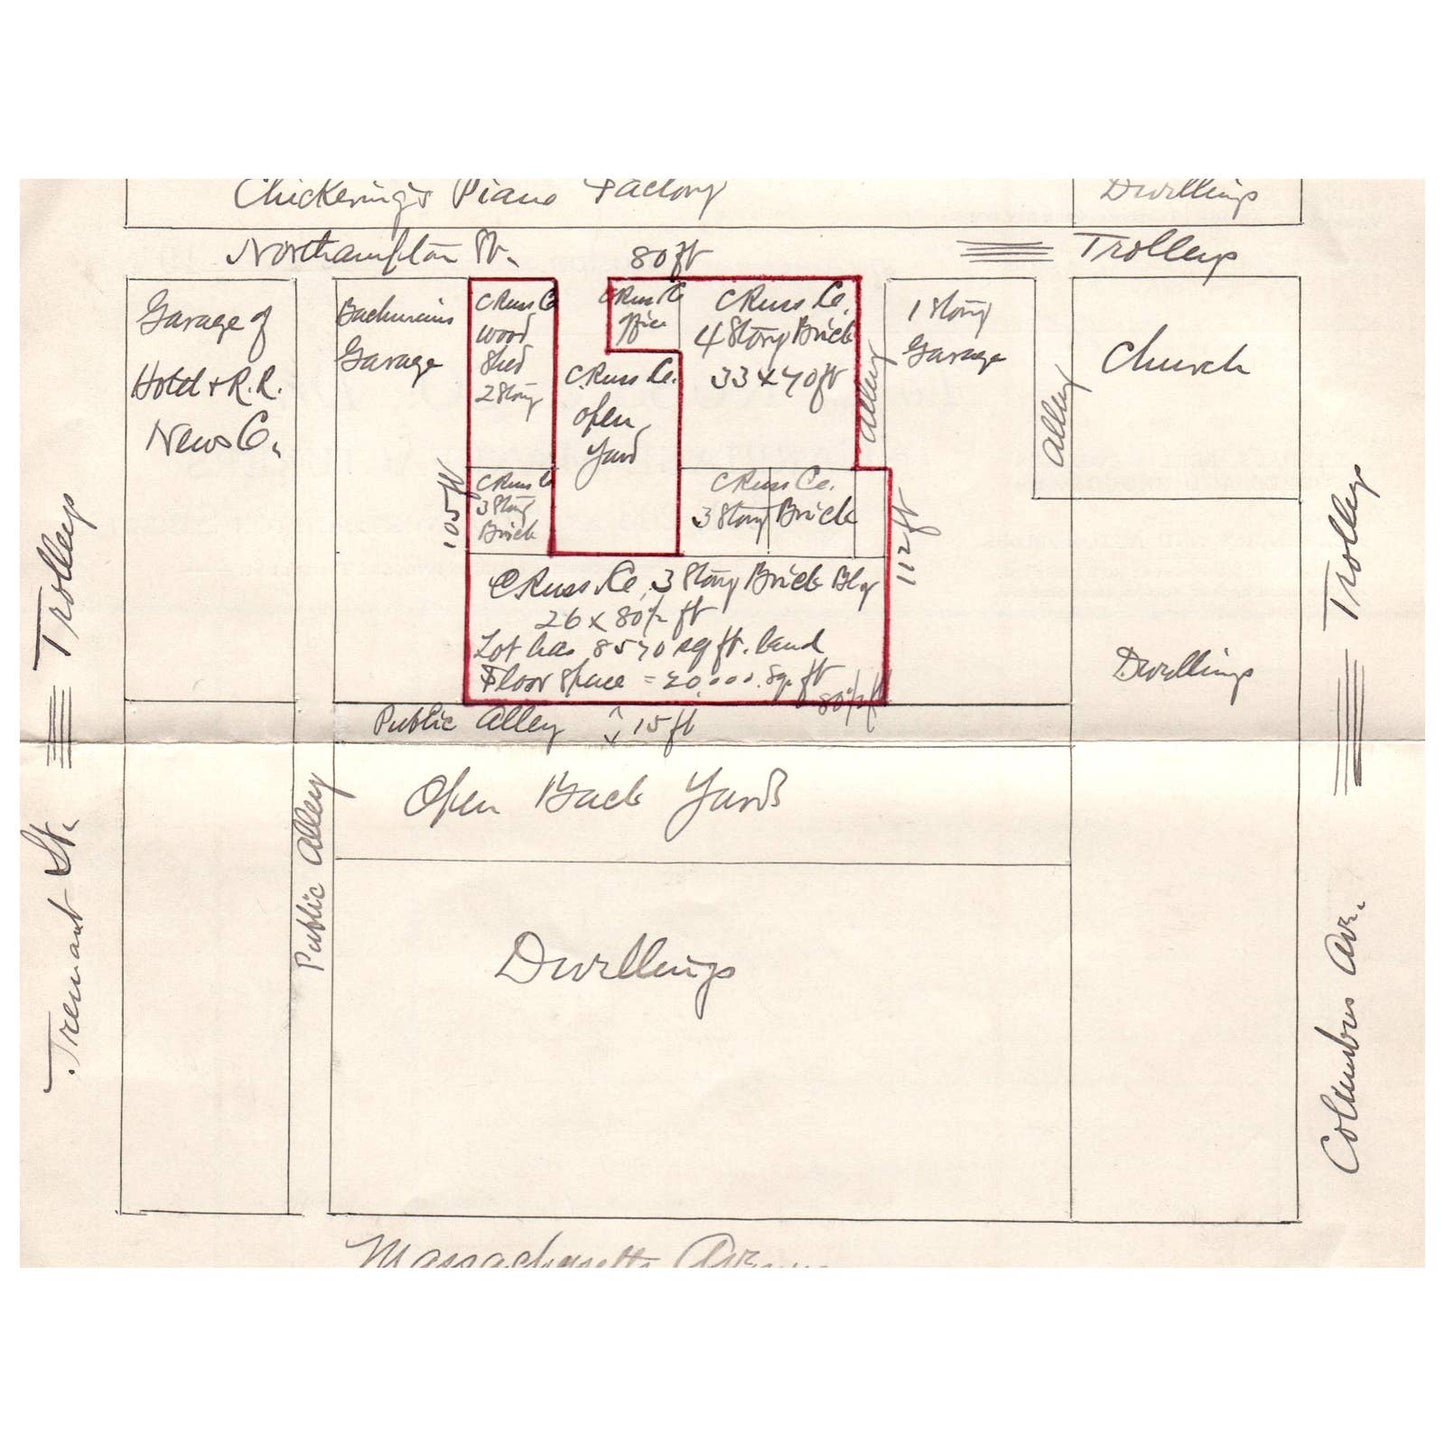 Chickering's Piano Factory
Dwellings
Northampton St.
80 ft
Trolleys
Garage of
Hotel & R.R.
News Co.
Garage
C Russ Co
wood
shed
2 Story
C Russ Co
office
C Russ Co.
4 Story Brick
33 x 70 ft
Alley
1 Story
Garage
Alley
Church
C. Russ Co.
open
Yard
C Russ Co
3 Story
Brick
C Russ Co.
3 Story Brick
105 ft
112 ft
C Russ Co. 3 Story Brick Bldg
26 x 80½ ft
Lot has 8570 sq ft. land
Floor space = 20,000. sq. ft
80½ ft
Dwellings
Public Alley 15 ft
Open Back Yards
Public Alley
Dwellings
Tremont St.
Trolleys
Columbus Ave.
Trolleys
Massachusetts Avenue